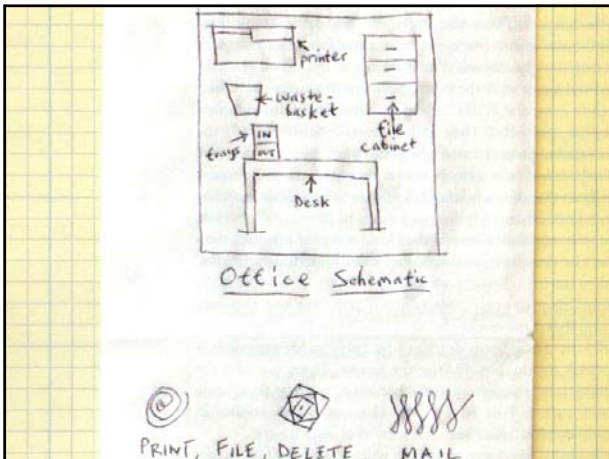 printer
waste-
basket
IN
OUT
trays
file
cabinet
Desk
Office Schematic
PRINT, FILE, DELETE MAIL